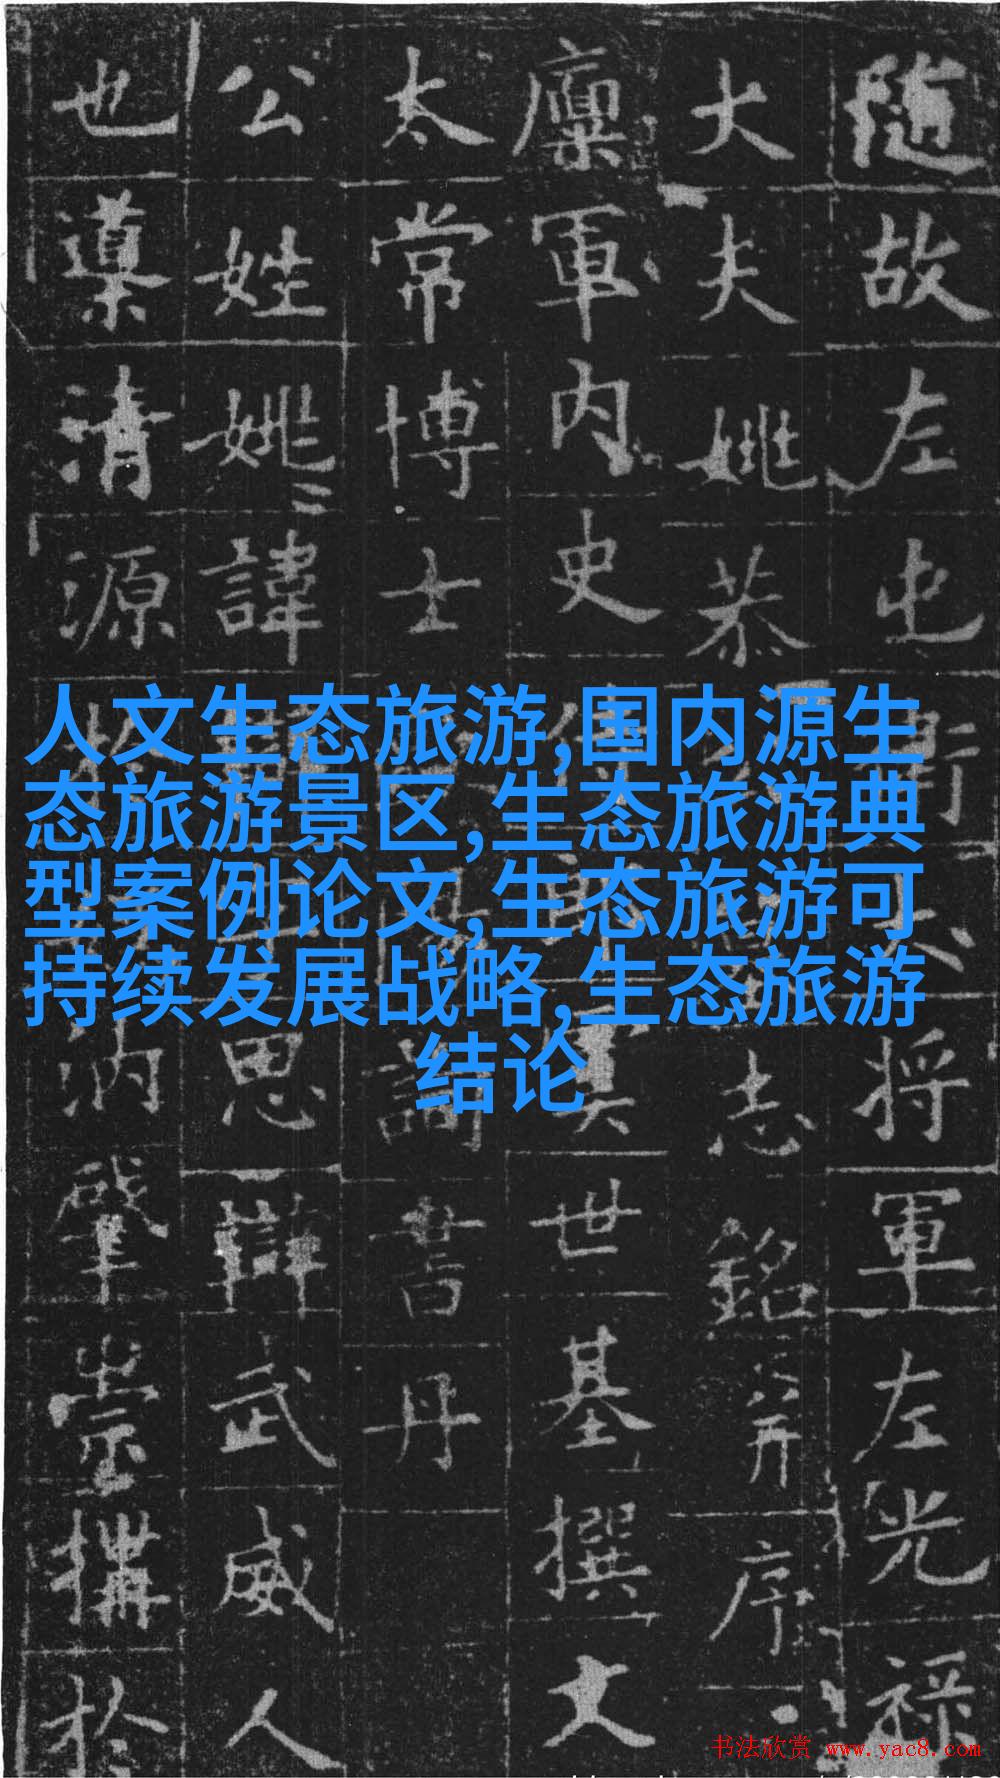 人文生态旅游,国内源生
态旅游景区,生态旅游典
型案例论文,生态旅游可
持续发展战略,生态旅游
结论
隨故左屯將軍左光祿
大夫姚恭志銘并序
軍内史世基撰文
太常博士書丹
公姓姚諱思辯武威人
也導清源汭肇崇構於
书法欣赏 www.yac8.com